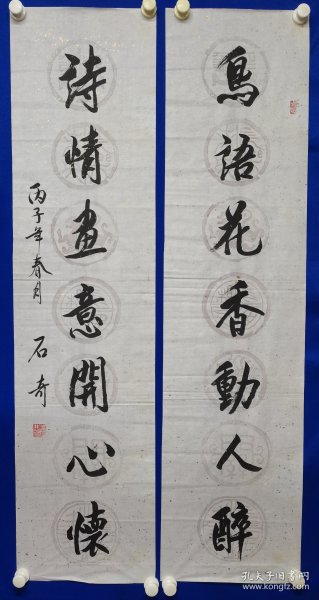 鳥語花香動人醉
詩情畫意開心懷
丙子年春月
石奇
孔夫子旧书网
www.kongfz.com